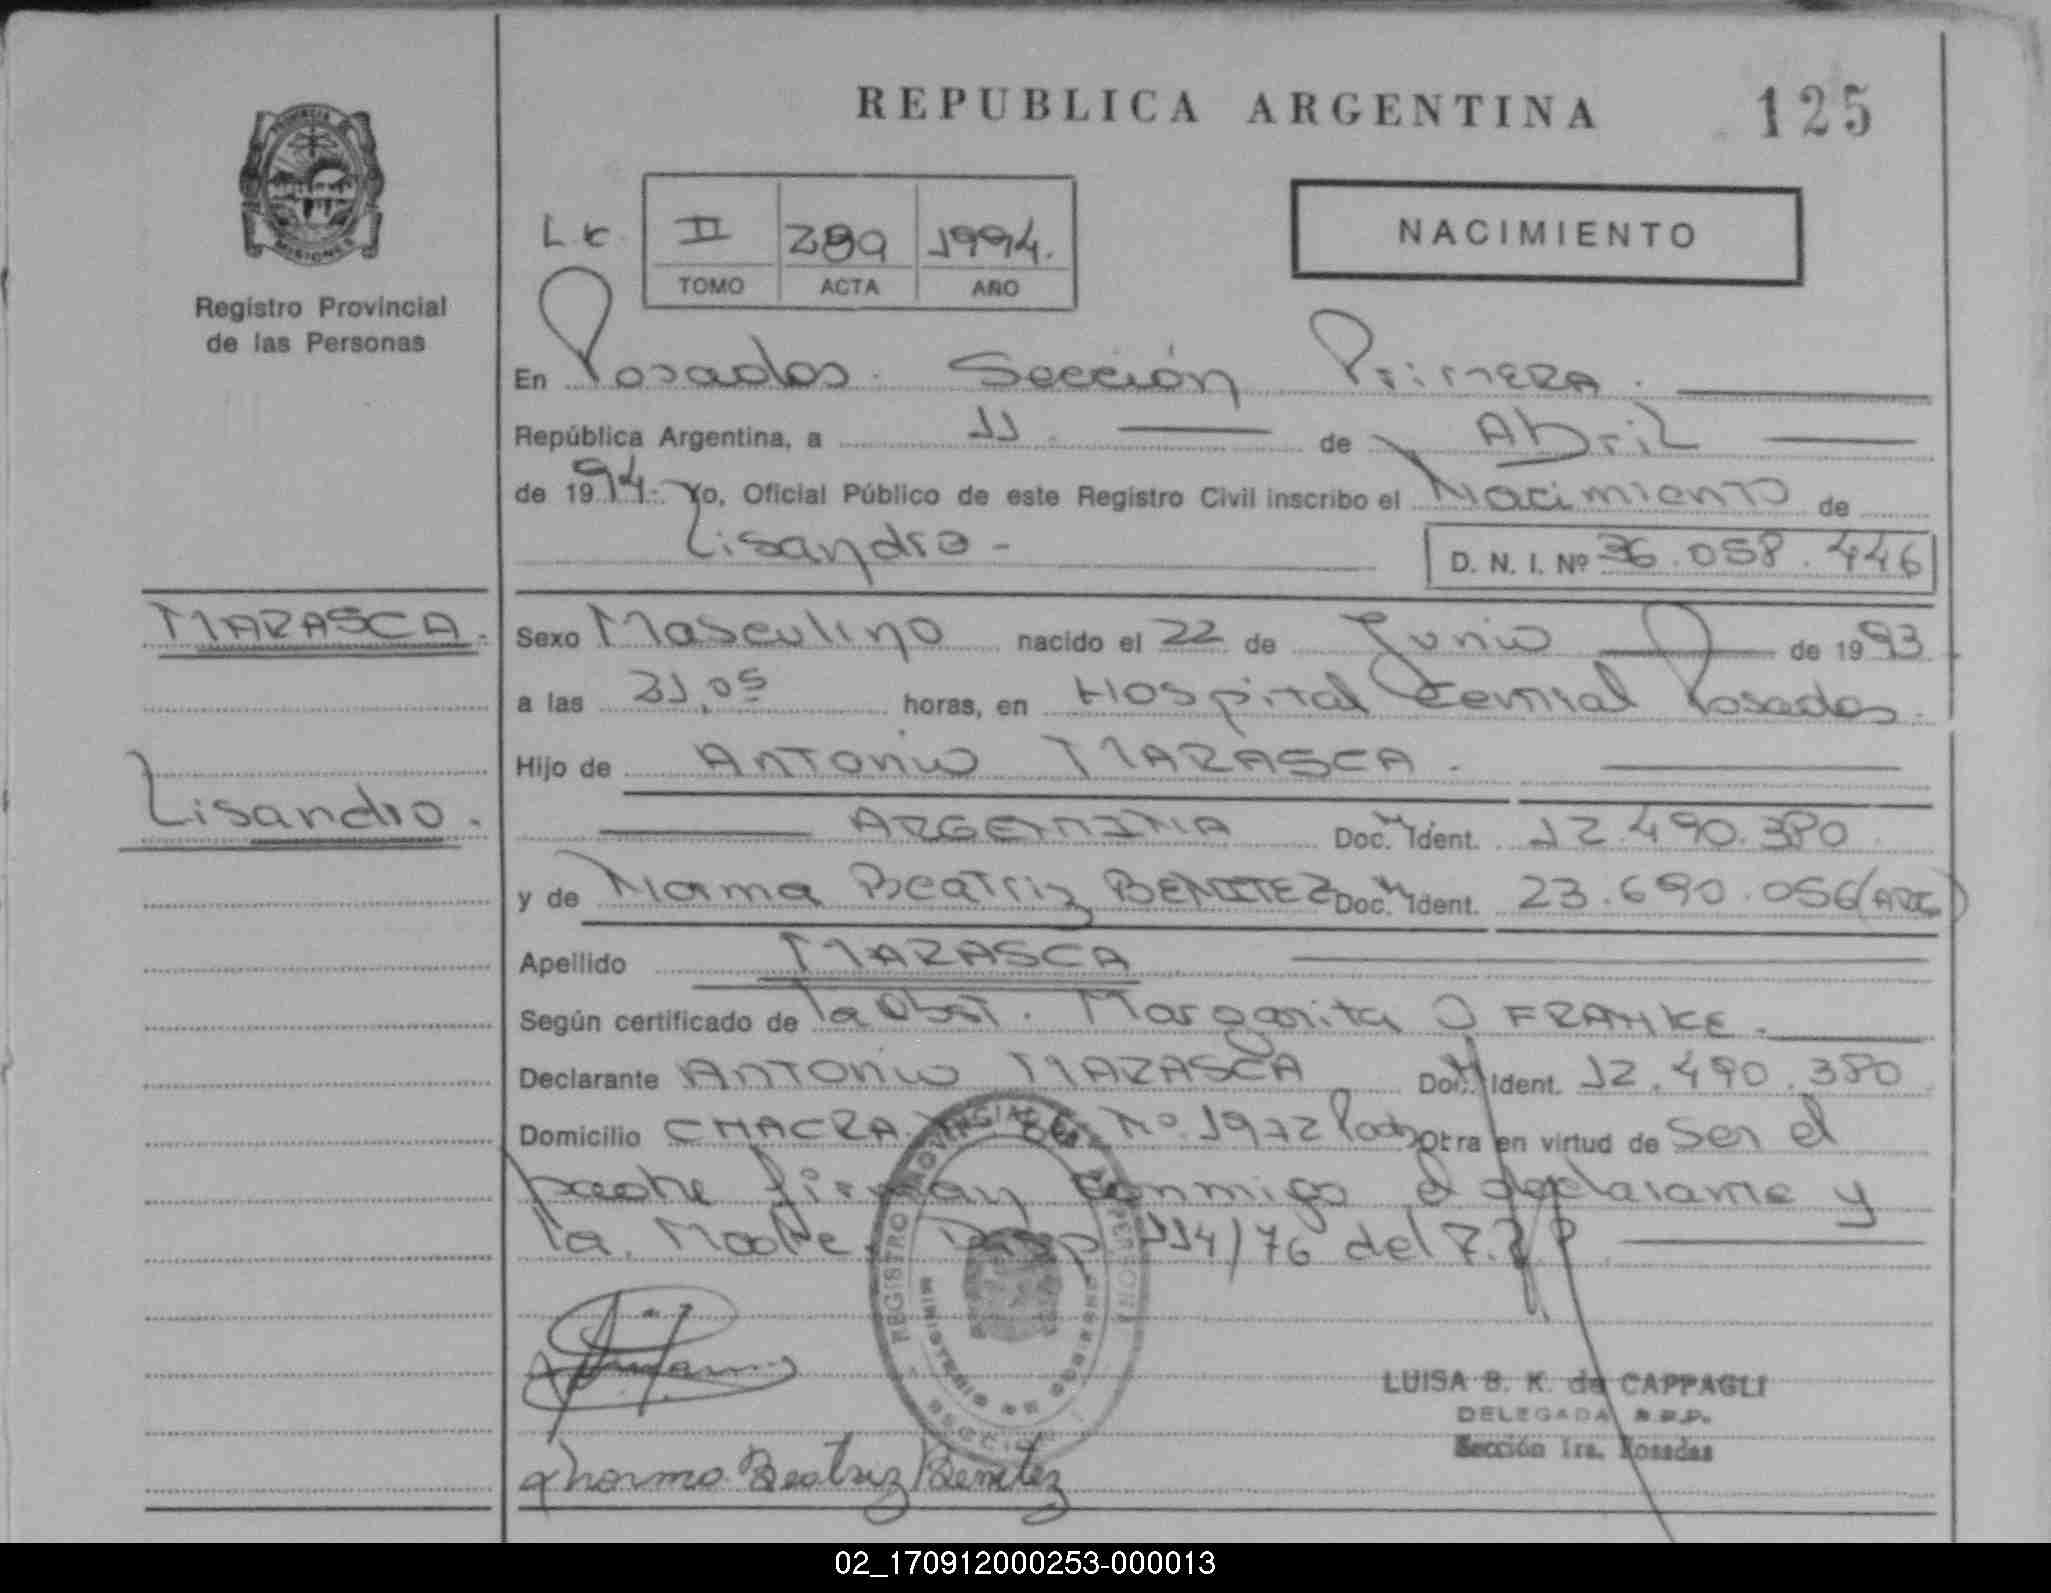 REPUBLICA ARGENTINA
125
PROVINCIA DE
MISIONES
Registro Provincial
de las Personas
II 289 1994.
TOMO ACTA AÑO
NACIMIENTO
En Posadas. Sección Primera.
República Argentina, a 11 de Abril
de 1994.- Yo, Oficial Público de este Registro Civil inscribo el Nacimiento de
Lisandro -
D. N. I. Nº 36.058.446
MARASCA.
Sexo Masculino nacido el 22 de Junio de 1993
a las 21,05 horas, en Hospital Central Posadas.
Hijo de Antonio MARASCA.
Lisandro.
ARGENTINA Doc. Ident. 12.490.380
y de Norma Beatriz BENITEZ Doc. Ident. 23.690.056 (ARG)
Apellido MARASCA
Según certificado de la Obst. Margarita O FRANKE.
Declarante Antonio MARASCA Doc. Ident. 12.490.380
Domicilio CHACRA Nº 1972 Obra en virtud de Ser el
padre firman conmigo el declarante y
la Madre. Disp 114/76 del R.P.P.
REGISTRO PROVINCIAL DE LAS PERSONAS
MINISTERIO DE GOBIERNO
LUISA B. K. de CAPPAGLI
DELEGADA R.P.P.
Sección 1ra. Posadas
Norma Beatriz Benitez
02_170912000253-000013